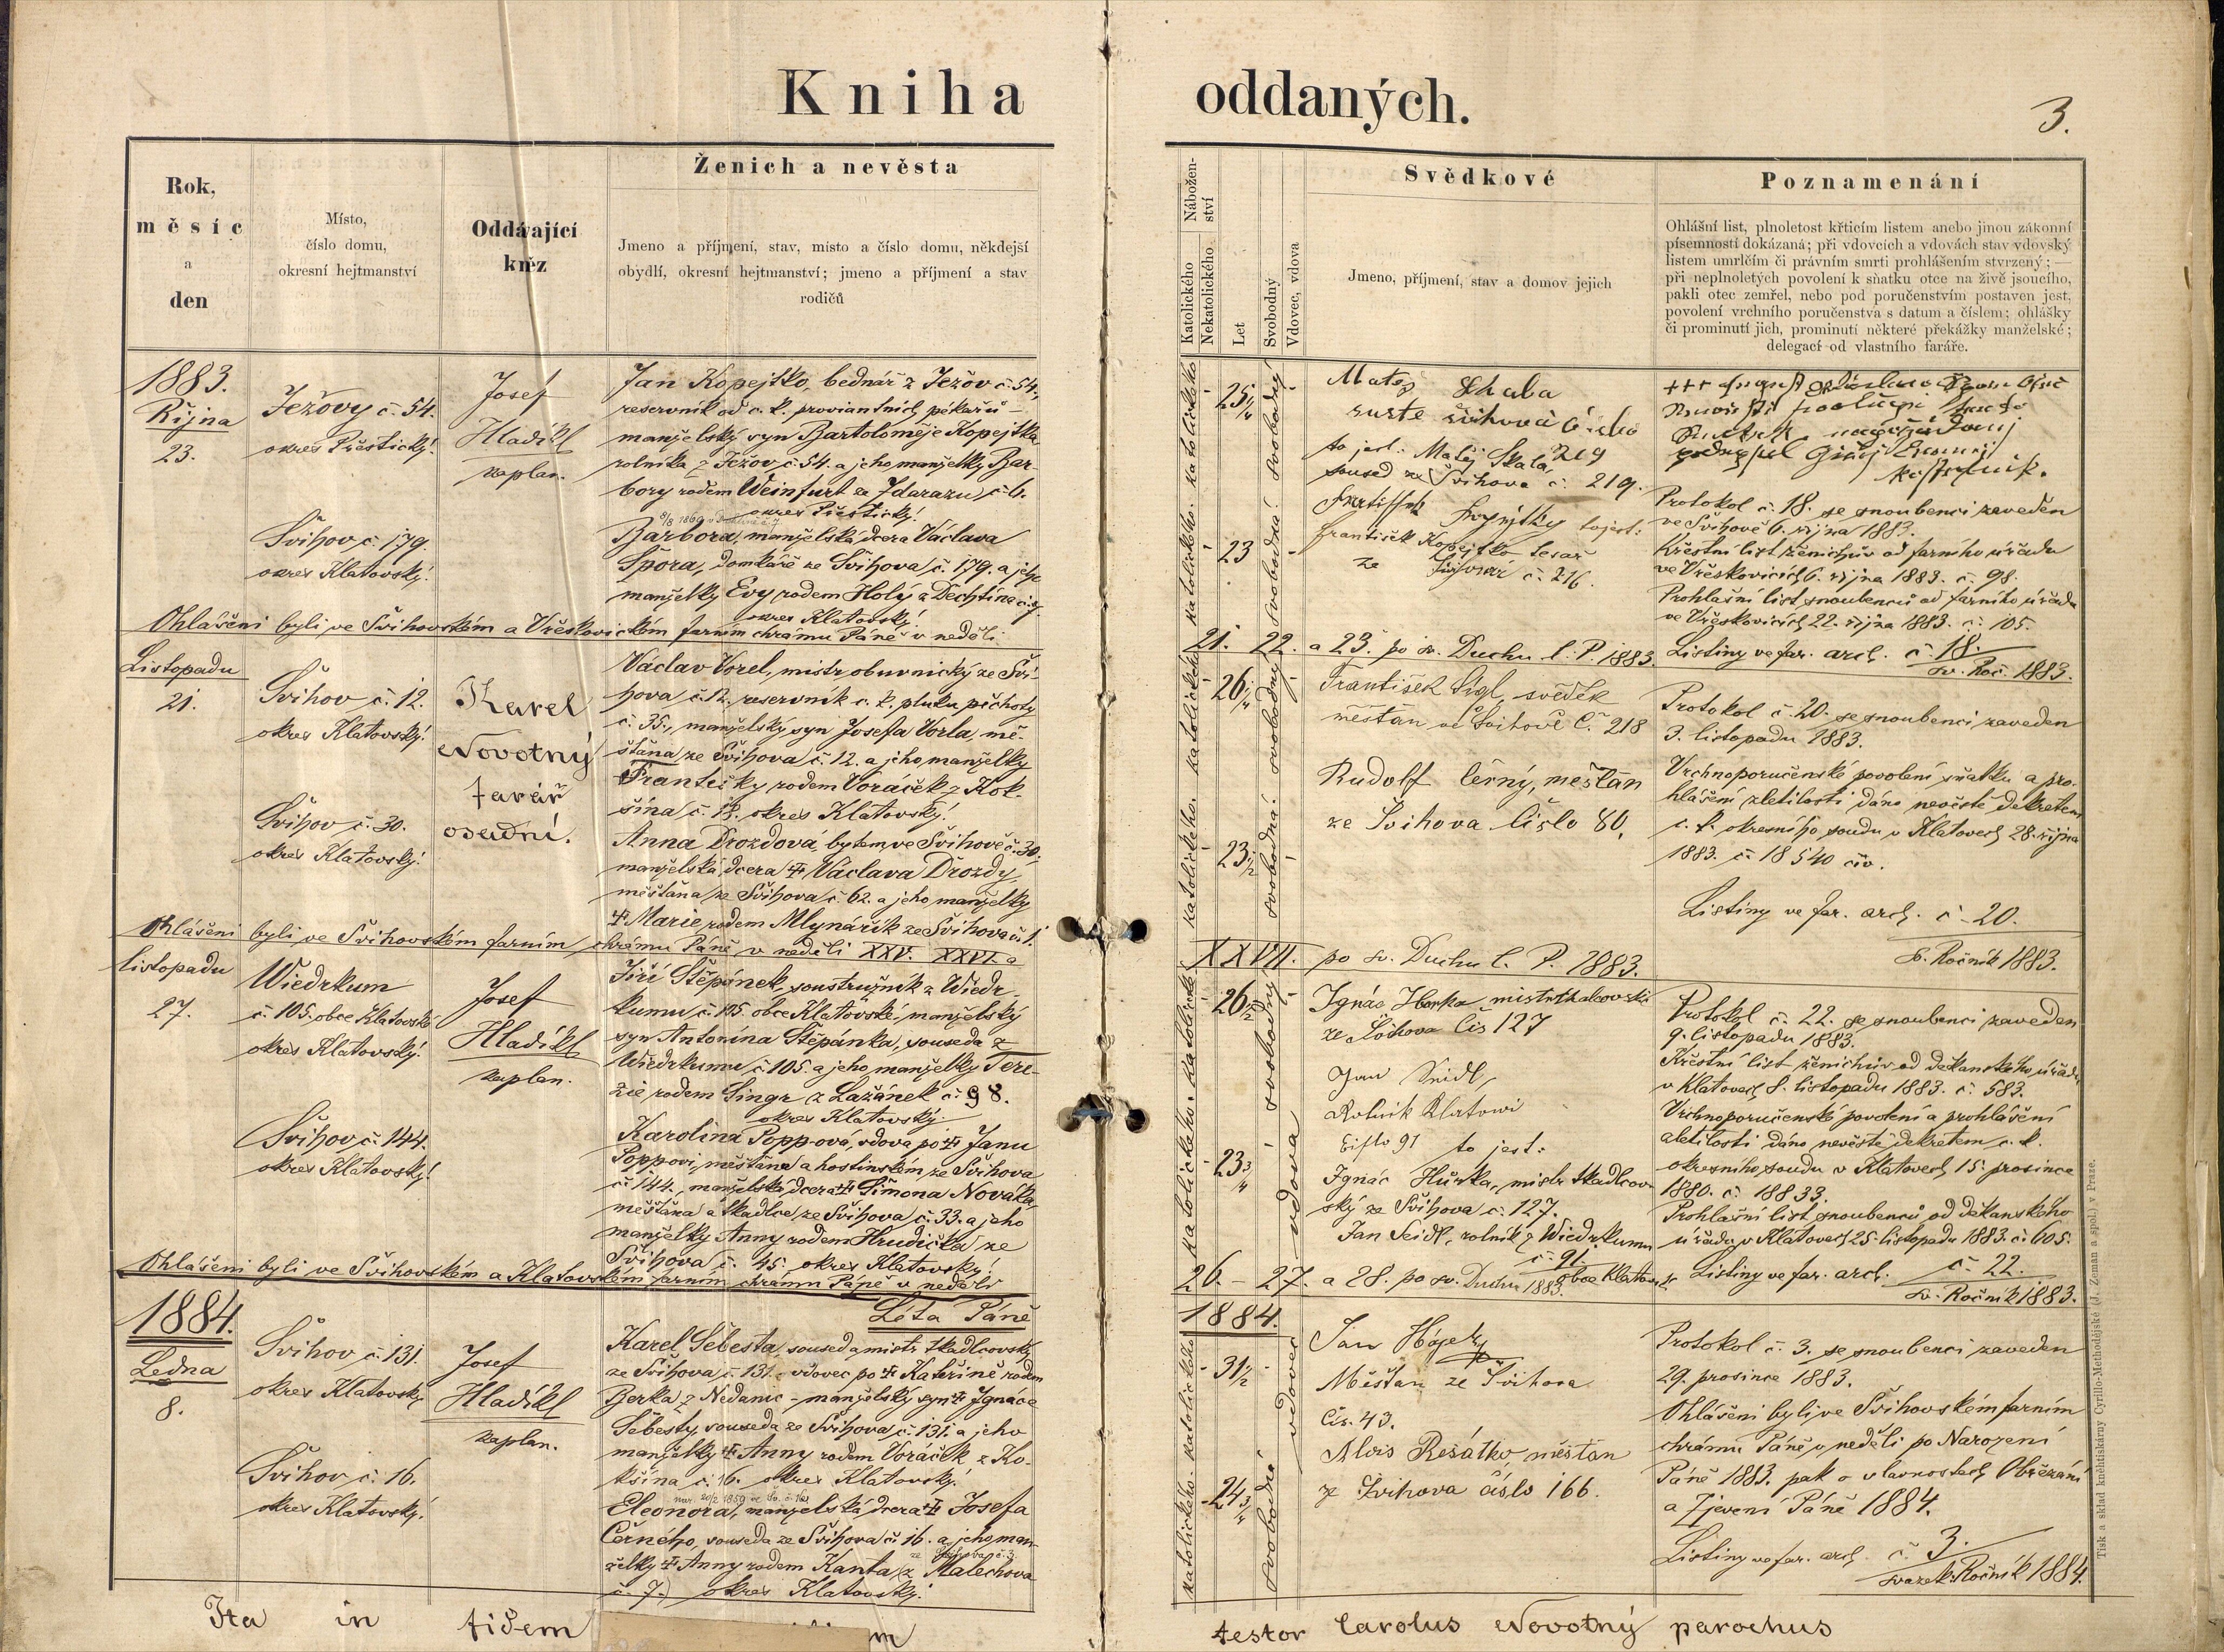 Kniha oddaných.
3.
Rok,
měsíc
a
den
Místo,
číslo domu,
okresní hejtmanství
Oddávající
kněz
Ženich a nevěsta
Jmeno a příjmení, stav, místo a číslo domu, někdejší
obydlí, okresní hejtmanství; jmeno a příjmení a stav
rodičů
Nábožen-
ství
Katolického
Nekatolického
Let
Svobodný
Vdovec, vdova
Svědkové
Jmeno, příjmení, stav a domov jejich
Poznamenání
Ohlášní list, plnoletost křticím listem anebo jinou zákonní
písemností dokázaná; při vdovcích a vdovách stav vdovský
listem umrlčím či právním smrti prohlášením stvrzený; —
při neplnoletých povolení k sňatku otce na živě jsoucího,
pakli otec zemřel, nebo pod poručenstvím postaven jest,
povolení vrchního poručenstva s datum a číslem; ohlášky
či prominutí jich, prominutí některé překážky manželské;
delegací od vlastního faráře.
1883.
Října
23.
Ježovy č. 54.
okres Přestický!
Švihov, č. 179.
okres Klatovský!
Josef
Hladíkl
kaplan.
Jan Kopejtko, bednář z Ježov č. 54,
reservník od c. k. proviantních pékařů –
manželský syn Bartoloměje Kopejtka
rolníka z Ježov č. 54. a jeho manželky Bar-
bory rodem Weinfurt ze Zdarazu č. 6.
okres Přestický!
Barbora, manželská dcera Václava
Špora, domkáře ze Švihova č. 179. a jeho
manželky Evy rodem Holý z Dechtína
okres Klatovský!
Ohlášeni byli ve Švihovském a Vřeskovickém farním chrámu Páně v neděli
katolického. katolického
25 1/4
svobodný
23
svobodná
Matej Skala
to jest: Matěj Skala,
soused ze Švihova č. 219.
tojest:
František Kopejtko tesař
ze Švihova č. 216.
Protokol č. 18. se snoubenci zaveden
ve Švihově 6. října 1883.
Křestní list ženichův od farního úřadu
ve Vřeskovicích 6. října 1883. č. 98.
Prohlášní list snoubenců od farního úřadu
ve Vřeskovicích 22. října 1883. č. 105.
21. 22. a 23. po sv. Duchu l. P. 1883.
Listiny ve far. arch. č. 18.
sv. Roč. 1883.
Listopadu
21.
Švihov č. 12.
okres Klatovský!
Švihov č. 30.
okres Klatovský!
Karel
Novotný
farář
osadní.
Václav Vorel, mistr obuvnický ze Švi-
hova č. 12. reservník c. k. pluku pěchoty
č. 35., manželský syn Josefa Vorla mě-
šťana ze Švihova č. 12. a jeho manželky
Františky rodem Voráček z Kok-
šína č. 18. okres Klatovský!
Anna Drozdová, bytem ve Švihově č. 30,
manželská dcera ✠ Václava Drozdy,
měšťana ze Švihova č. 62. a jeho manželky
✠ Marie rodem Mlynářík ze Švihova č. 1.
Ohlášeni byli ve Švihovském farním chrámu Páně v neděli XXV. XXVI. a
katolického. katolického
26 1/4
svobodný
23 1/2
svobodná
František Šígl, svědek
měšťan ve Švihově č. 218
Rudolf Černý, měšťan
ze Švihova číslo 80.
Protokol č. 20. se snoubenci zaveden
3. listopadu 1883.
Vrchnoporučenské povolení sňatku a pro-
hlášení zletilosti dáno nevěstě dekretem
c. k. okresního soudu v Klatovech 28. října
1883. č. 18540 civ.
Listiny ve far. arch. č. 20.
sv. Ročník 1883.
XXVII. po sv. Duchu l. P. 1883.
listopadu
27.
Wiedrkum
č. 105, obce Klatovské
okres Klatovský!
Švihov, č. 144.
okres Klatovský!
Josef
Hladíkl
kaplan.
Jiří Štěpánek, soustružník z Wiedr-
kumu č. 105. obce Klatovské, manželský
syn Antonína Štěpánka, souseda z
Wiedrkumu č. 105. a jeho manželky Tere-
zie rodem Singr z Lažánek č. 98.
okres Klatovský
Karolina Poppová, vdova po ✠ Janu
Poppovi, měšťanu a hostinském ze Švihova
č. 144., manželská dcera ✠ Šimona Nováka,
měšťana a tkadlce ze Švihova č. 33. a jeho
manželky Anny rodem Hrudička ze
Švihova č. 45. okres Klatovský!
Ohlášeni byli ve Švihovském a Klatovském farním chrámu Páně v neděli
katolického. katolického
26 1/2
svobodný
23 3/4
vdova
Ignác Hůrka mistr tkalcovský
ze Švihova čís 127
Jan Seidl,
Rolník
91 to jest:
Ignác Hůrka, mistr tkadlcov-
ský ze Švihova č. 127.
Jan Seidl, rolník z Wiedrkumu
č. 91.
obce Klatovské
Protokol č. 22. se snoubenci zaveden
9. listopadu 1883.
Křestní list ženichův od děkanského úřadu
v Klatovech 8. listopadu 1883. č. 583.
Vrchnoporučenské povolení a prohlášení
zletilosti dáno nevěstě dekretem c. k.
okresního soudu v Klatovech 15. prosince
1880. č. 18833.
Prohlášní list snoubenců od děkanského
úřadu v Klatovech 25. listopadu 1883. č. 605.
26. – 27. a 28. po sv. Duchu 1883.
Listiny ve far. arch. č. 22.
sv. Ročník 1883.
1884.
Léta Páně
1884.
Ledna
8.
Švihov č. 131.
okres Klatovský
Švihov č. 16.
okres Klatovský!
Josef
Hladíkl
kaplan.
Karel Šebesta, soused a mistr tkadlcovský
ze Švihova č. 131. vdovec po ✠ Kateřině rodem
Berka z Nedanic – manželský syn ✠ Ignáce
Šebesty, souseda ze Švihova č. 131. a jeho
manželky ✠ Anny rodem Voráček z Ko-
kšína č. 16. okres Klatovský!
nar. 20/2 1859 ve Šv. č. 162
Eleonora, manželská dcera ✠ Josefa
Černého, souseda ze Švihova č. 16. a jeho man-
želky ✠ Anny rodem Kanta (z Malechova
č. 7.) okres Klatovský!
katolického. katolického
31 1/2
vdovec
24 3/4
svobodná
Jan Hágek
Měšťan ze Švihova
čís. 43.
Alois Rešátko, měšťan
ze Švihova číslo 166.
Protokol č. 3. se snoubenci zaveden
29. prosince 1883.
Ohlášeni byli ve Švihovském farním
chrámu Páně v neděli po Narození
Páně 1883. pak o slavnostech Obřezání
a Zjevení Páně 1884.
Listiny ve far. arch. č. 3.
svazek: Ročník 1884.
Ita in fidem
testor Carolus Novotný parochus
Tisk a sklad knihtiskárny Cyrillo-Methodějské (J. Zeman a spol.) v Praze.